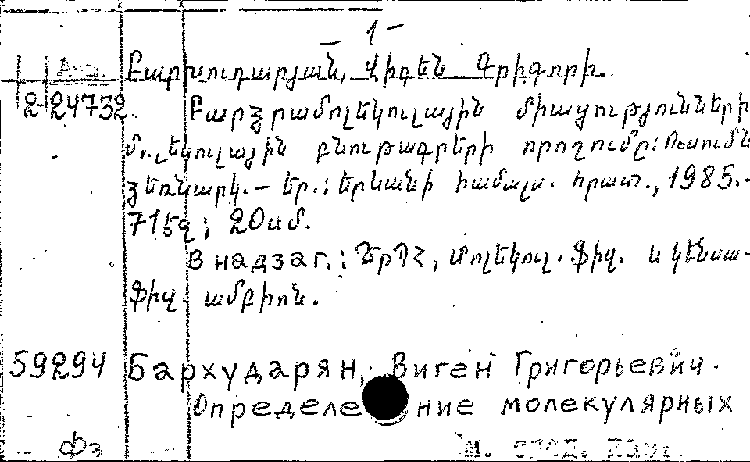 - 1 -
Բարխուդարյան, Վիգեն Գրիգորի.
2 24732. Բարձրամոլեկուլային միացությունների
մոլեկուլային բնութագրերի որոշումը: Ուսումն
ձեռնարկ. - Եր.: Երևանի համալս. հրատ., 1985.-
71էջ; 20սմ.
В надзаг.: ԵրՊՀ, մոլեկուլ. ֆիզ. և կենսա-
ֆիզ. ամբիոն.
59294 Бархударян, Виген Григорьевич.
Определение молекулярных
Фз